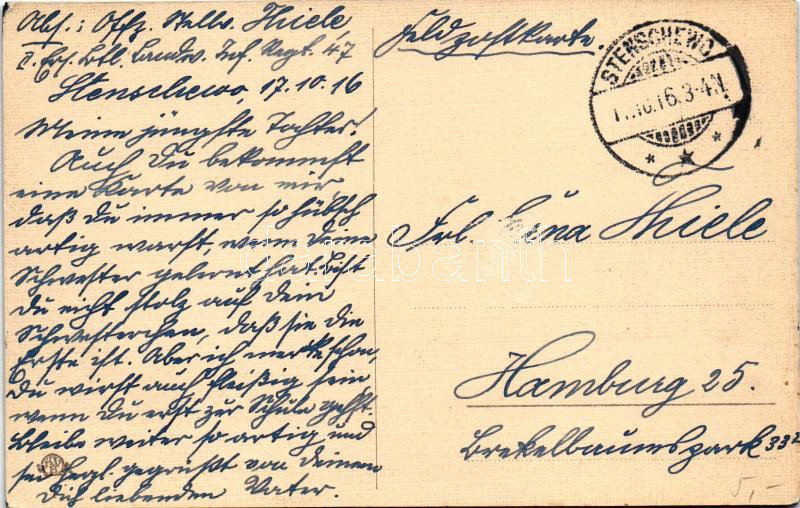 Abs.: Offz. Stellv. Thiele,
II. Ers. Btl. Landw. Inf. Regt. 47
Stenschewo, 17.10.16
Meine jüngste Tochter!
Auch Du bekommst
eine Karte von mir,
daß Du immer so hübsch
artig warst, wenn Deine
Schwester gelernt hat. Bist
Du nicht stolz auf Dein
Schwesterchen, daß sie die
Erste ist. Aber ich merke schon,
Du wirst auch fleißig sein
wenn Du erst zur Schule gehst.
Bleibe weiter so artig und
sei herzl. gegrüßt von Deinem
Dich liebenden Vater.
Feldpostkarte.
STENSCHEWO
16.3-4N
Frl. Thiele
Hamburg 25.
Brekelbaumspark 33
5,-
darabanth